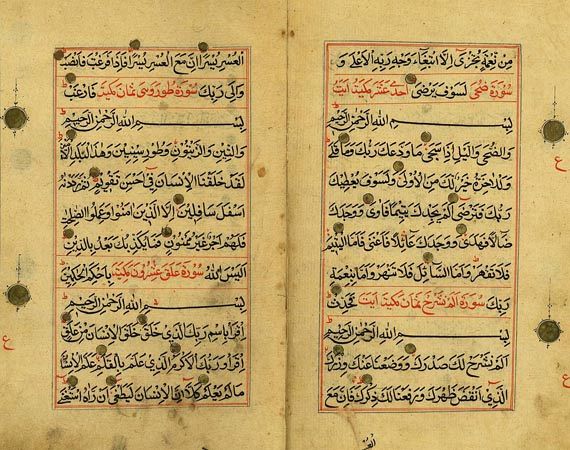 من نعمة تجزى الا ابتغاء وجه ربه الاعلى و
لسوف يرضى سورة ضحى احد عشر مكية ايت
بسم الله الرحمن الرحيم
والضحى واليل اذا سجى ما ودعك ربك وما قلى
وللاخرة خير لك من الاولى ولسوف يعطيك
ربك فترضى الم يجدك يتيما فاوى ووجدك
ضالا فهدى ووجدك عائلا فاغنى فاما اليتيم
فلا تقهر واما السائل فلا تنهر واما بنعمة
ربك فحدث سورة الم نشرح ثمان مكية ايت
بسم الله الرحمن الرحيم
الم نشرح لك صدرك ووضعنا عنك وزرك
الذي انقض ظهرك ورفعنا لك ذكرك فان مع
العسر يسرا ان مع العسر يسرا فاذا فرغت فانصب
والى ربك فارغب سورة ثمان مكية
بسم الله الرحمن الرحيم
والتين والزيتون وطور سينين وهذا البلد الا
لقد خلقنا الانسان في احسن تقويم ثم رددنه
اسفل سافلين الا الذين امنوا وعملوا الصلحت
فلهم اجر غير ممنون فما يكذبك بعد بالدين
اليس الله باحكم الحكمين سورة علق عشرون مكية
بسم الله الرحمن الرحيم
اقرا باسم ربك الذي خلق خلق الانسان من علق
اقرا وربك الاكرم الذي علم بالقلم علم الانسان
ما لم يعلم كلا ان الانسان ليطغى ان راه استغنى
ع
ع
ع